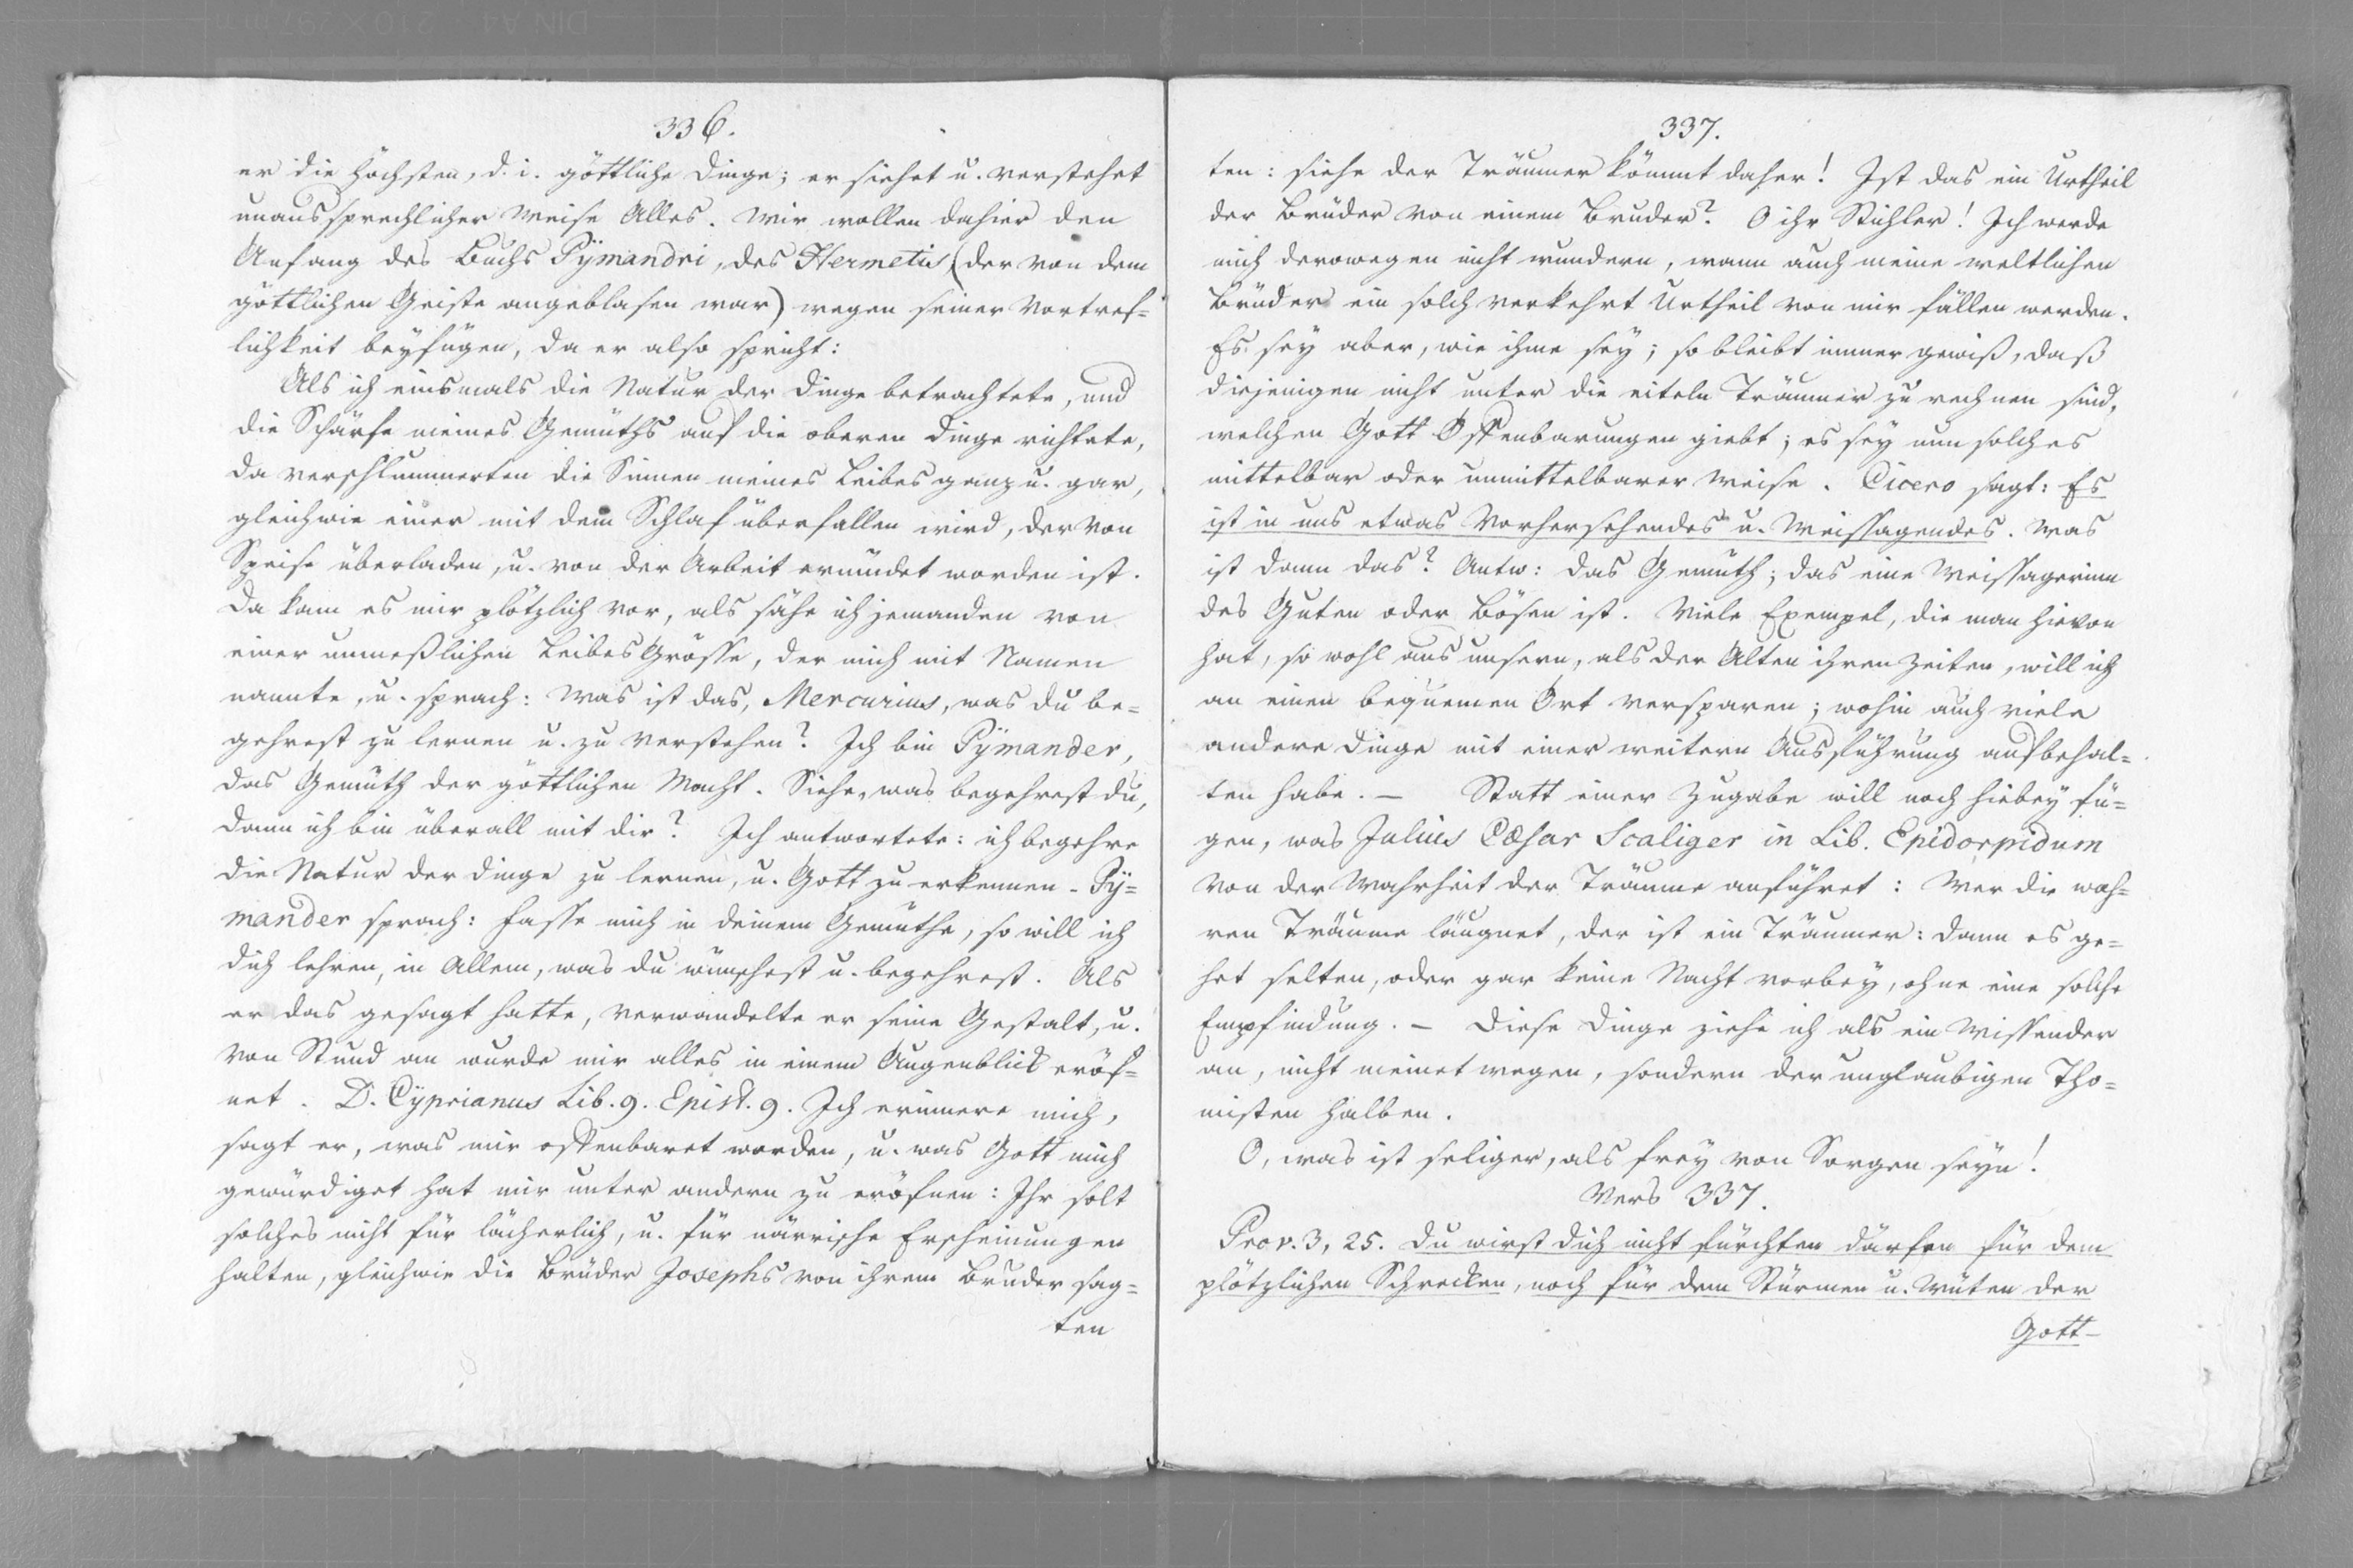 336.
er die höchsten, d. i. göttliche Dinge; er siehet u. verstehet
unaussprechlicher Weise Alles. Wir wollen dahier den
Anfang des Buchs Pÿmandri, des Hermetis (der von dem
göttlichen Geiste angeblasen war) wegen seiner Vortref=
lichkeit beyfügen, da er also spricht:
Als ich einsmals die Natur der Dinge betrachtete, und
die Schärfe meines Gemüths auf die oberen Dinge richtete,
da verschlummerten die Sinnen meines Leibes ganz u. gar,
gleichwie einer mit dem Schlaf überfallen wird, der von
Speise überladen, u. von der Arbeit ermüdet worden ist.
Da kam es mir plötzlich vor, als sähe ich jemanden von
einer unmeßlichen Leibes Grösse, der mich mit Namen
nannte, u. sprach: Was ist das, Mercurius, was du be=
gehrest zu lernen u. zu verstehen? Ich bin Pÿmander,
das Gemüth der göttlichen Macht. Siehe, was begehrest du,
dann ich bin überall mit dir? Ich antwortete: ich begehre
die Natur der Dinge zu lernen, u. Gott zu erkennen. Pÿ=
mander sprach: fasse mich in deinem Gemüthe, so will ich
dich lehren, in Allem, was du wünschest u. begehrest. Als
er das gesagt hatte, verwandelte er seine Gestalt, u.
von Stund an wurde mir alles in einem Augenblick eröf=
net. D. Cÿprianus Lib. 9. Epist. 9. Ich erinnere mich,
sagt er, was mir offenbaret worden, u. was Gott mich
gewürdiget hat mir unter andern zu eröfnen: Ihr solt
solches nicht für lächerlich, u. für närrische Erscheinungen
halten, gleichwie die Brüder Josephs von ihrem Bruder sag=
ten
337.
ten: siehe der Träumer kömmt daher! Ist das ein Urtheil
der Brüder von einem Bruder? O ihr Stichler! Ich werde
mich derowegen nicht wundern, wann auch meine weltlichen
Brüder ein solch verkehrt Urtheil von mir fällen werden.
Es sey aber, wie ihme sey; so bleibt immer gewiß, daß
diejenigen nicht unter die eiteln Träumer zu rechnen sind,
welchen Gott Offenbarungen giebt; es sey nun solches
mittelbar oder unmittelbarer Weise. Cicero sagt: Es
ist in uns etwas Vorhersehendes u. Weissagendes. Was
ist dann das? Antw: das Gemüth; das eine Weissagerinn
des Guten oder Bösen ist. Viele Exempel, die man hievon
hat, so wohl aus unsern, als der Alten ihren Zeiten, will ich
an einen bequemen Ort versparen; wohin auch viele
andere Dinge mit einer weitern Ausführung aufbehal=
ten habe. – Statt einer Zugabe will noch hiebey fü=
gen, was Julius Cæsar Scaliger in Lib. Epidorpidum
von der Wahrheit der Träume anführet: Wer die wah=
ren Träume läugnet, der ist ein Träumer: dann es ge=
het selten, oder gar keine Nacht vorbey, ohne eine solche
Empfindung. – Diese Dinge ziehe ich als ein Wissender
an, nicht meinet wegen, sondern der unglaubigen Tho=
misten halben.
O, was ist seliger, als frey von Sorgen seyn!
Vers 337.
Prov. 3, 25. Du wirst dich nicht fürchten därfen für dem
plötzlichen Schrecken, noch für dem Stürmen u. Wüten der
Gott-